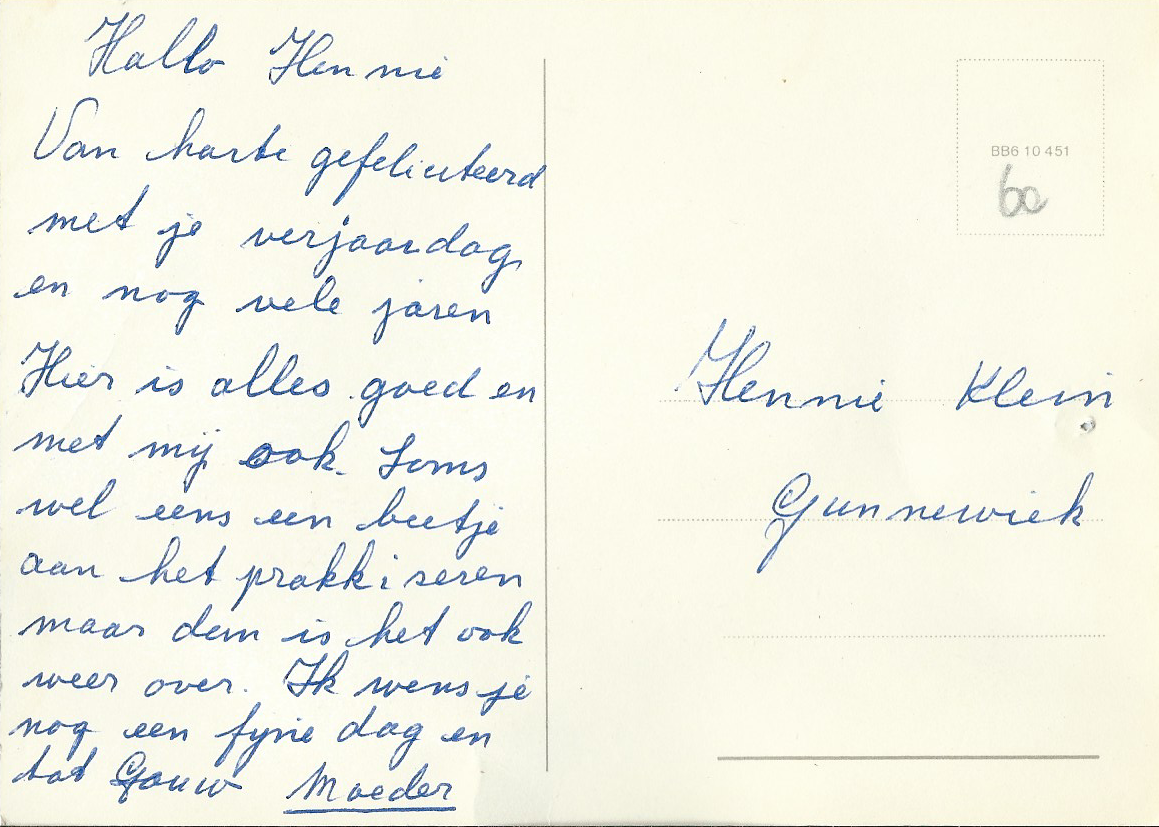 Hallo Hennie
Van harte gefeliciteerd
met je verjaardag
en nog vele jaren
Hier is alles goed en
met mij ook. Soms
wel eens een beetje
aan het prakkiseren
maar dem is het ook
weer over. Ik wens je
nog een fyne dag en
tot Gouw Moeder
BB6 10 451
60
Hennie Klein
Gunnewiek